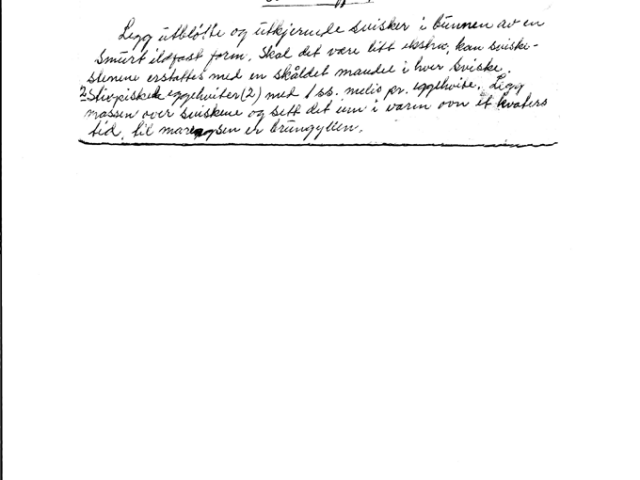 Legg utbløtte og utkjernede svisker i bunnen av en
smurt ildfast form. Skal det være litt ekstra, kan sviske-
stenene erstattes med en skåldet mandel i hver sviske.
2 Stivpiskede eggehviter (2) med 1 ss. melis pr. eggehvite. Legg
massen over sviskene og sett det inn i varm ovn et kvarters
tid, til marengsen er brungyllen.